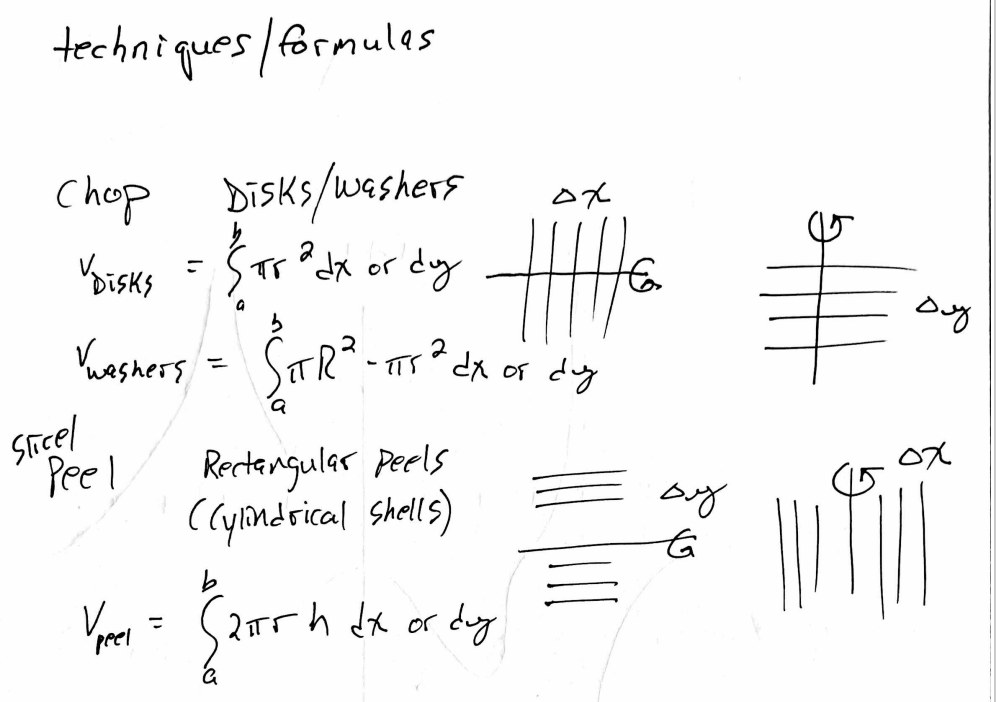 techniques/formulas
Chop Disks/washers Δx
V_Disks = ∫_a^b πr² dx or dy Δy
V_washers = ∫_a^b πR² - πr² dx or dy
Slice/
Peel Rectangular peels Δy Δx
(Cylindrical shells)
V_peel = ∫_a^b 2πr h dx or dy